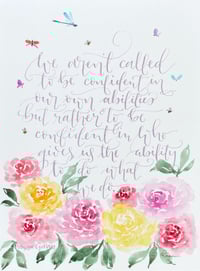 We aren't called
to be confident in
our own abilities
but rather to be
confident in Who
gives us the ability
to do what
we do.